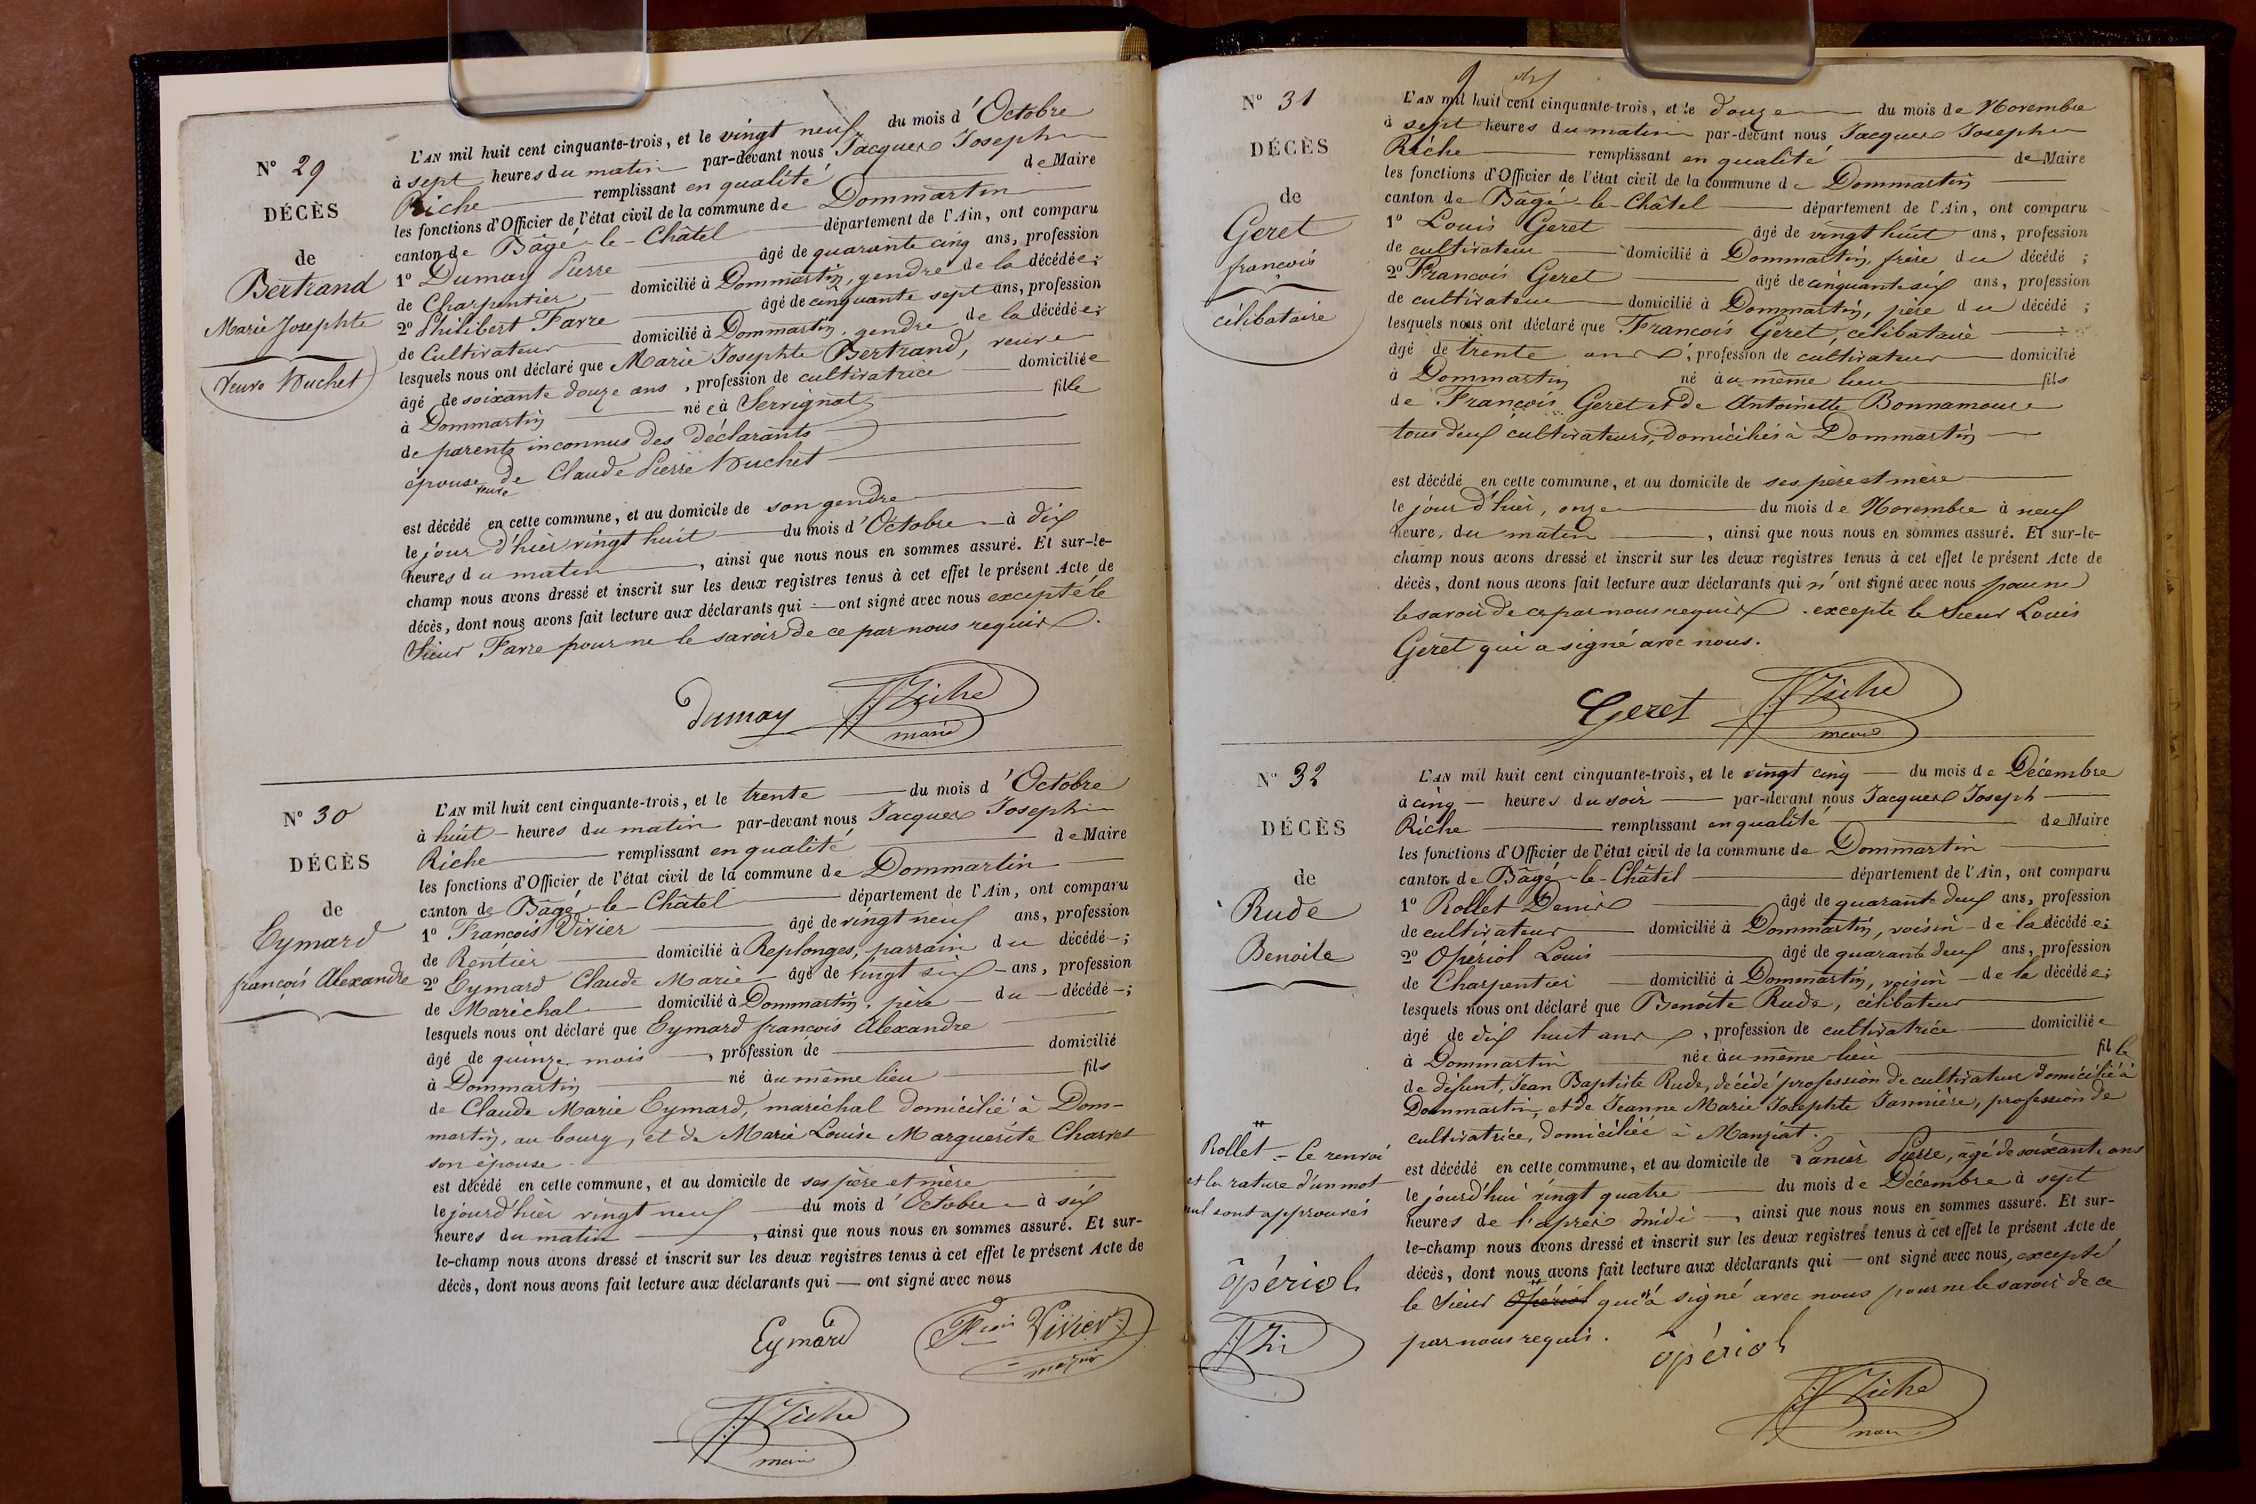 N° 29
DÉCÈS
de
Bertrand
Marie Josephte
Veuve Huchet
L'AN mil huit cent cinquante-trois, et le vingt neuf du mois d'Octobre
à sept heures du matin par-devant nous Jacques Joseph
Riche remplissant en qualité de Maire
les fonctions d'Officier de l'état civil de la commune de Dommartin
canton de Bâgé-le-Châtel département de l'Ain, ont comparu
1° Dumay Pierre âgé de quarante cinq ans, profession
de Charpentier domicilié à Dommartin, gendre de la décédée;
2° Philibert Favre âgé de cinquante sept ans, profession
de Cultivateur domicilié à Dommartin, gendre de la décédée;
lesquels nous ont déclaré que Marie Josephte Bertrand, veuve
âgé de soixante douze ans, profession de cultivatrice domiciliée
à Dommartin née à Servignat fille
de parents inconnus des déclarants
épouse veuve de Claude Pierre Huchet
est décédé en cette commune, et au domicile de son gendre
le jour d'hier vingt huit du mois d'Octobre à dix
heures du matin, ainsi que nous nous en sommes assuré. Et sur-le-
champ nous avons dressé et inscrit sur les deux registres tenus à cet effet le présent Acte de
décès, dont nous avons fait lecture aux déclarants qui ont signé avec nous excepté le
Sieur Favre pour ne le savoir de ce par nous requis.
Dumay JJ Riche
maire
N° 30
DÉCÈS
de
Eymard
françois Alexandre
L'AN mil huit cent cinquante-trois, et le trente du mois d'Octobre
à huit heures du matin par-devant nous Jacques Joseph
Riche remplissant en qualité de Maire
les fonctions d'Officier de l'état civil de la commune de Dommartin
canton de Bâgé-le-Châtel département de l'Ain, ont comparu
1° François Vivier âgé de vingt neuf ans, profession
de Rentier domicilié à Replonges, parrain du décédé;
2° Eymard Claude Marie âgé de vingt six ans, profession
de Maréchal domicilié à Dommartin, père du décédé;
lesquels nous ont déclaré que Eymard françois Alexandre
âgé de quinze mois, profession de domicilié
à Dommartin né au même lieu fils
de Claude Marie Eymard, maréchal domicilié à Dom-
martin, au bourg, et de Marie Louise Marguerite Charvet
son épouse
est décédé en cette commune, et au domicile de ses père et mère
le jour d'hier vingt neuf du mois d'Octobre à six
heures du matin, ainsi que nous nous en sommes assuré. Et sur-
le-champ nous avons dressé et inscrit sur les deux registres tenus à cet effet le présent Acte de
décès, dont nous avons fait lecture aux déclarants qui ont signé avec nous
Eymard Fçois Vivier
JJ Riche
maire
9
N° 31
DÉCÈS
de
Geret
françois
célibataire
L'AN mil huit cent cinquante-trois, et le douze du mois de Novembre
à sept heures du matin par-devant nous Jacques Joseph
Riche remplissant en qualité de Maire
les fonctions d'Officier de l'état civil de la commune de Dommartin
canton de Bâgé-le-Châtel département de l'Ain, ont comparu
1° Louis Geret âgé de vingt huit ans, profession
de cultivateur domicilié à Dommartin, frère du décédé;
2° François Geret âgé de cinquante six ans, profession
de cultivateur domicilié à Dommartin, père du décédé;
lesquels nous ont déclaré que François Geret, célibataire
âgé de trente ans, profession de cultivateur domicilié
à Dommartin né au même lieu fils
de François Geret et de Antoinette Bonnamour
tous deux cultivateurs, domiciliés à Dommartin
est décédé en cette commune, et au domicile de ses père et mère
le jour d'hier, onze du mois de Novembre à neuf
heure, du matin, ainsi que nous nous en sommes assuré. Et sur-le-
champ nous avons dressé et inscrit sur les deux registres tenus à cet effet le présent Acte de
décès, dont nous avons fait lecture aux déclarants qui n'ont signé avec nous pour ne
le savoir de ce par nous requis. excepte le Sieur Louis
Geret qui a signé avec nous.
Geret JJ Riche
maire
N° 32
DÉCÈS
de
Rude
Benoite
L'AN mil huit cent cinquante-trois, et le vingt cinq du mois de Décembre
à cinq heures du soir par-devant nous Jacques Joseph
Riche remplissant en qualité de Maire
les fonctions d'Officier de l'état civil de la commune de Dommartin
canton de Bâgé-le-Châtel département de l'Ain, ont comparu
1° Rollet Denis âgé de quarante deux ans, profession
de cultivateur domicilié à Dommartin, voisin de la décédée;
2° Opériol Louis âgé de quarante deux ans, profession
de Charpentier domicilié à Dommartin, voisin de la décédée;
lesquels nous ont déclaré que Benoite Rude, célibateur
âgé de dix huit ans, profession de cultivatrice domiciliée
à Dommartin née au même lieu fille
de défunt, Jean Baptiste Rude, décédé profession de cultivateur domicilié à
Dommartin, et de Jeanne Marie Josephte Jannière, profession de
cultivatrice, domiciliée à Manziat.
est décédé en cette commune, et au domicile de Panier Pierre, âgé de soixante ans
le jourd'hui vingt quatre du mois de Décembre à sept
heures de l'après midi, ainsi que nous nous en sommes assuré. Et sur-
le-champ nous avons dressé et inscrit sur les deux registres tenus à cet effet le présent Acte de
décès, dont nous avons fait lecture aux déclarants qui ont signé avec nous, excepté
le Sieur Opériol qui n'a signé avec nous pour ne le savoir de ce
par nous requis.
opériol
JJ Riche
maire
Rollet = le renvoi
et la rature d'un mot
nul sont approuvés
opériol
JJ Ri